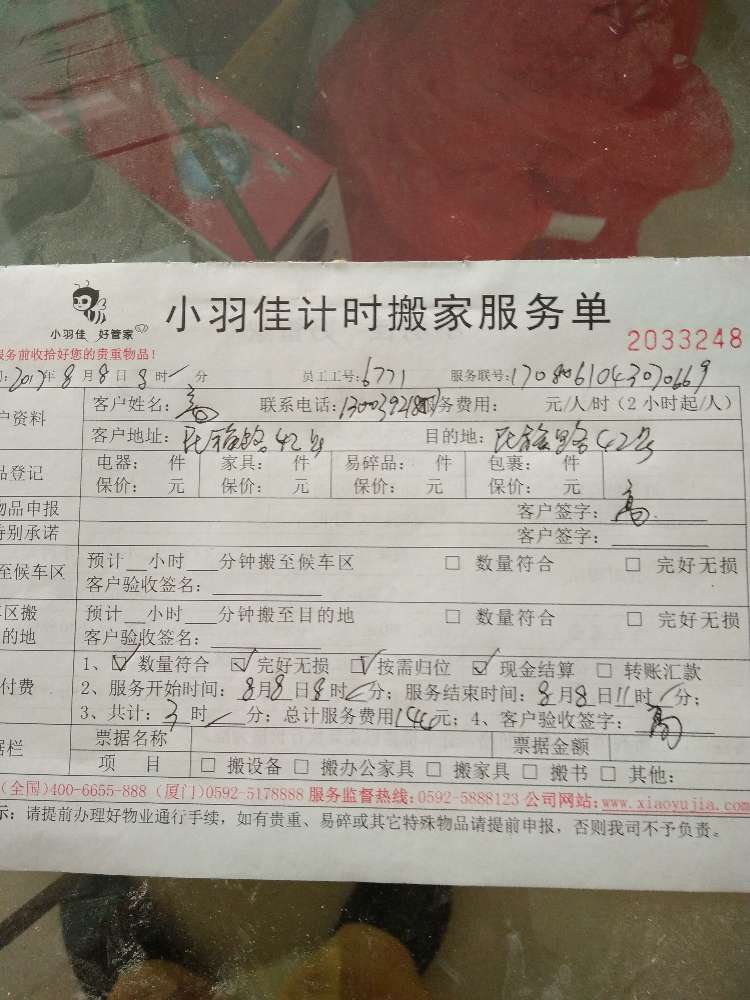 小羽佳 好管家
小羽佳计时搬家服务单
2033248
服务前收拾好您的贵重物品！
2017年8月8日8时/分 员工工号:6771 服务联号:
户资料 客户姓名:高 联系电话: 服务费用: 元/人/时（2小时起/人）
客户地址: 42号 目的地: 42号
品登记 电器: 件 家具: 件 易碎品: 件 包裹: 件
保价: 元 保价: 元 保价: 元 保价: 元
物品申报 客户签字:高
特别承诺 客户签字:
至候车区 预计__小时___分钟搬至候车区 □ 数量符合 □ 完好无损
客户验收签名:
区搬 预计__小时___分钟搬至目的地 □ 数量符合 □ 完好无损
的地 客户验收签名:
付费 1、☑数量符合 ☑完好无损 ☑按需归位 ☑现金结算 □ 转账汇款
2、服务开始时间:8月8日8时/分; 服务结束时间:8月8日11时/分;
3、共计:3时/分; 总计服务费用144元; 4、客户验收签字:高
据栏 票据名称 票据金额
项 目 □ 搬设备 □ 搬办公家具 □ 搬家具 □ 搬书 □ 其他:
(全国)400-6655-888 (厦门)0592-5178888 服务监督热线:0592-5888123 公司网站:www.xiaoyujia.com
示: 请提前办理好物业通行手续，如有贵重、易碎或其它特殊物品请提前申报，否则我司不予负责。